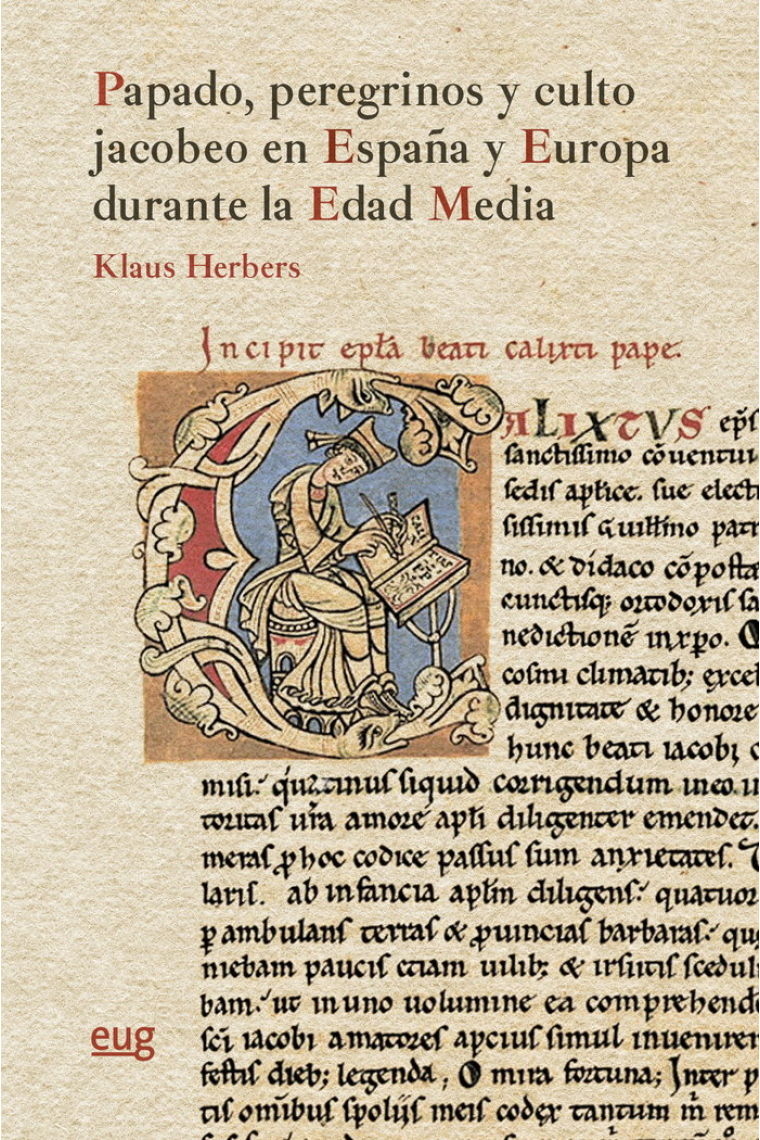 Papado, peregrinos y culto
jacobeo en España y Europa
durante la Edad Media
Klaus Herbers
Incipit epła beati calixti pape.
CALIXTVS ep̃s
sanctissimo cõuentui
sedis aplice. sue electi
sissimis q̃ uillmo patr
no. & didaco cõposte
cunctisq; ortodoxis sa
nedictionẽ inxpo. Q
cosmi climatib; excel
dignitate & honore
hunc beati iacobi c
misi. quatinus siquid corrigendum ineo in
toritas ur̃a amore apłi diligenter emendet.
meras p hoc codice passus sum anxietates.
laris. ab infancia apłm diligens. quatuor
p ambulans terras & puincias barbaras. que
niebam paucis etiam uilib; & irsutis scedul
bam. ut inuno uolumine ea comprehende
sc̃i iacobi amatores apcius simul inuenirent
festis dieb; legenda, O mira fortuna; Inter p
tis omĩbus spoliis meis codex tantum m̃ rem
eug